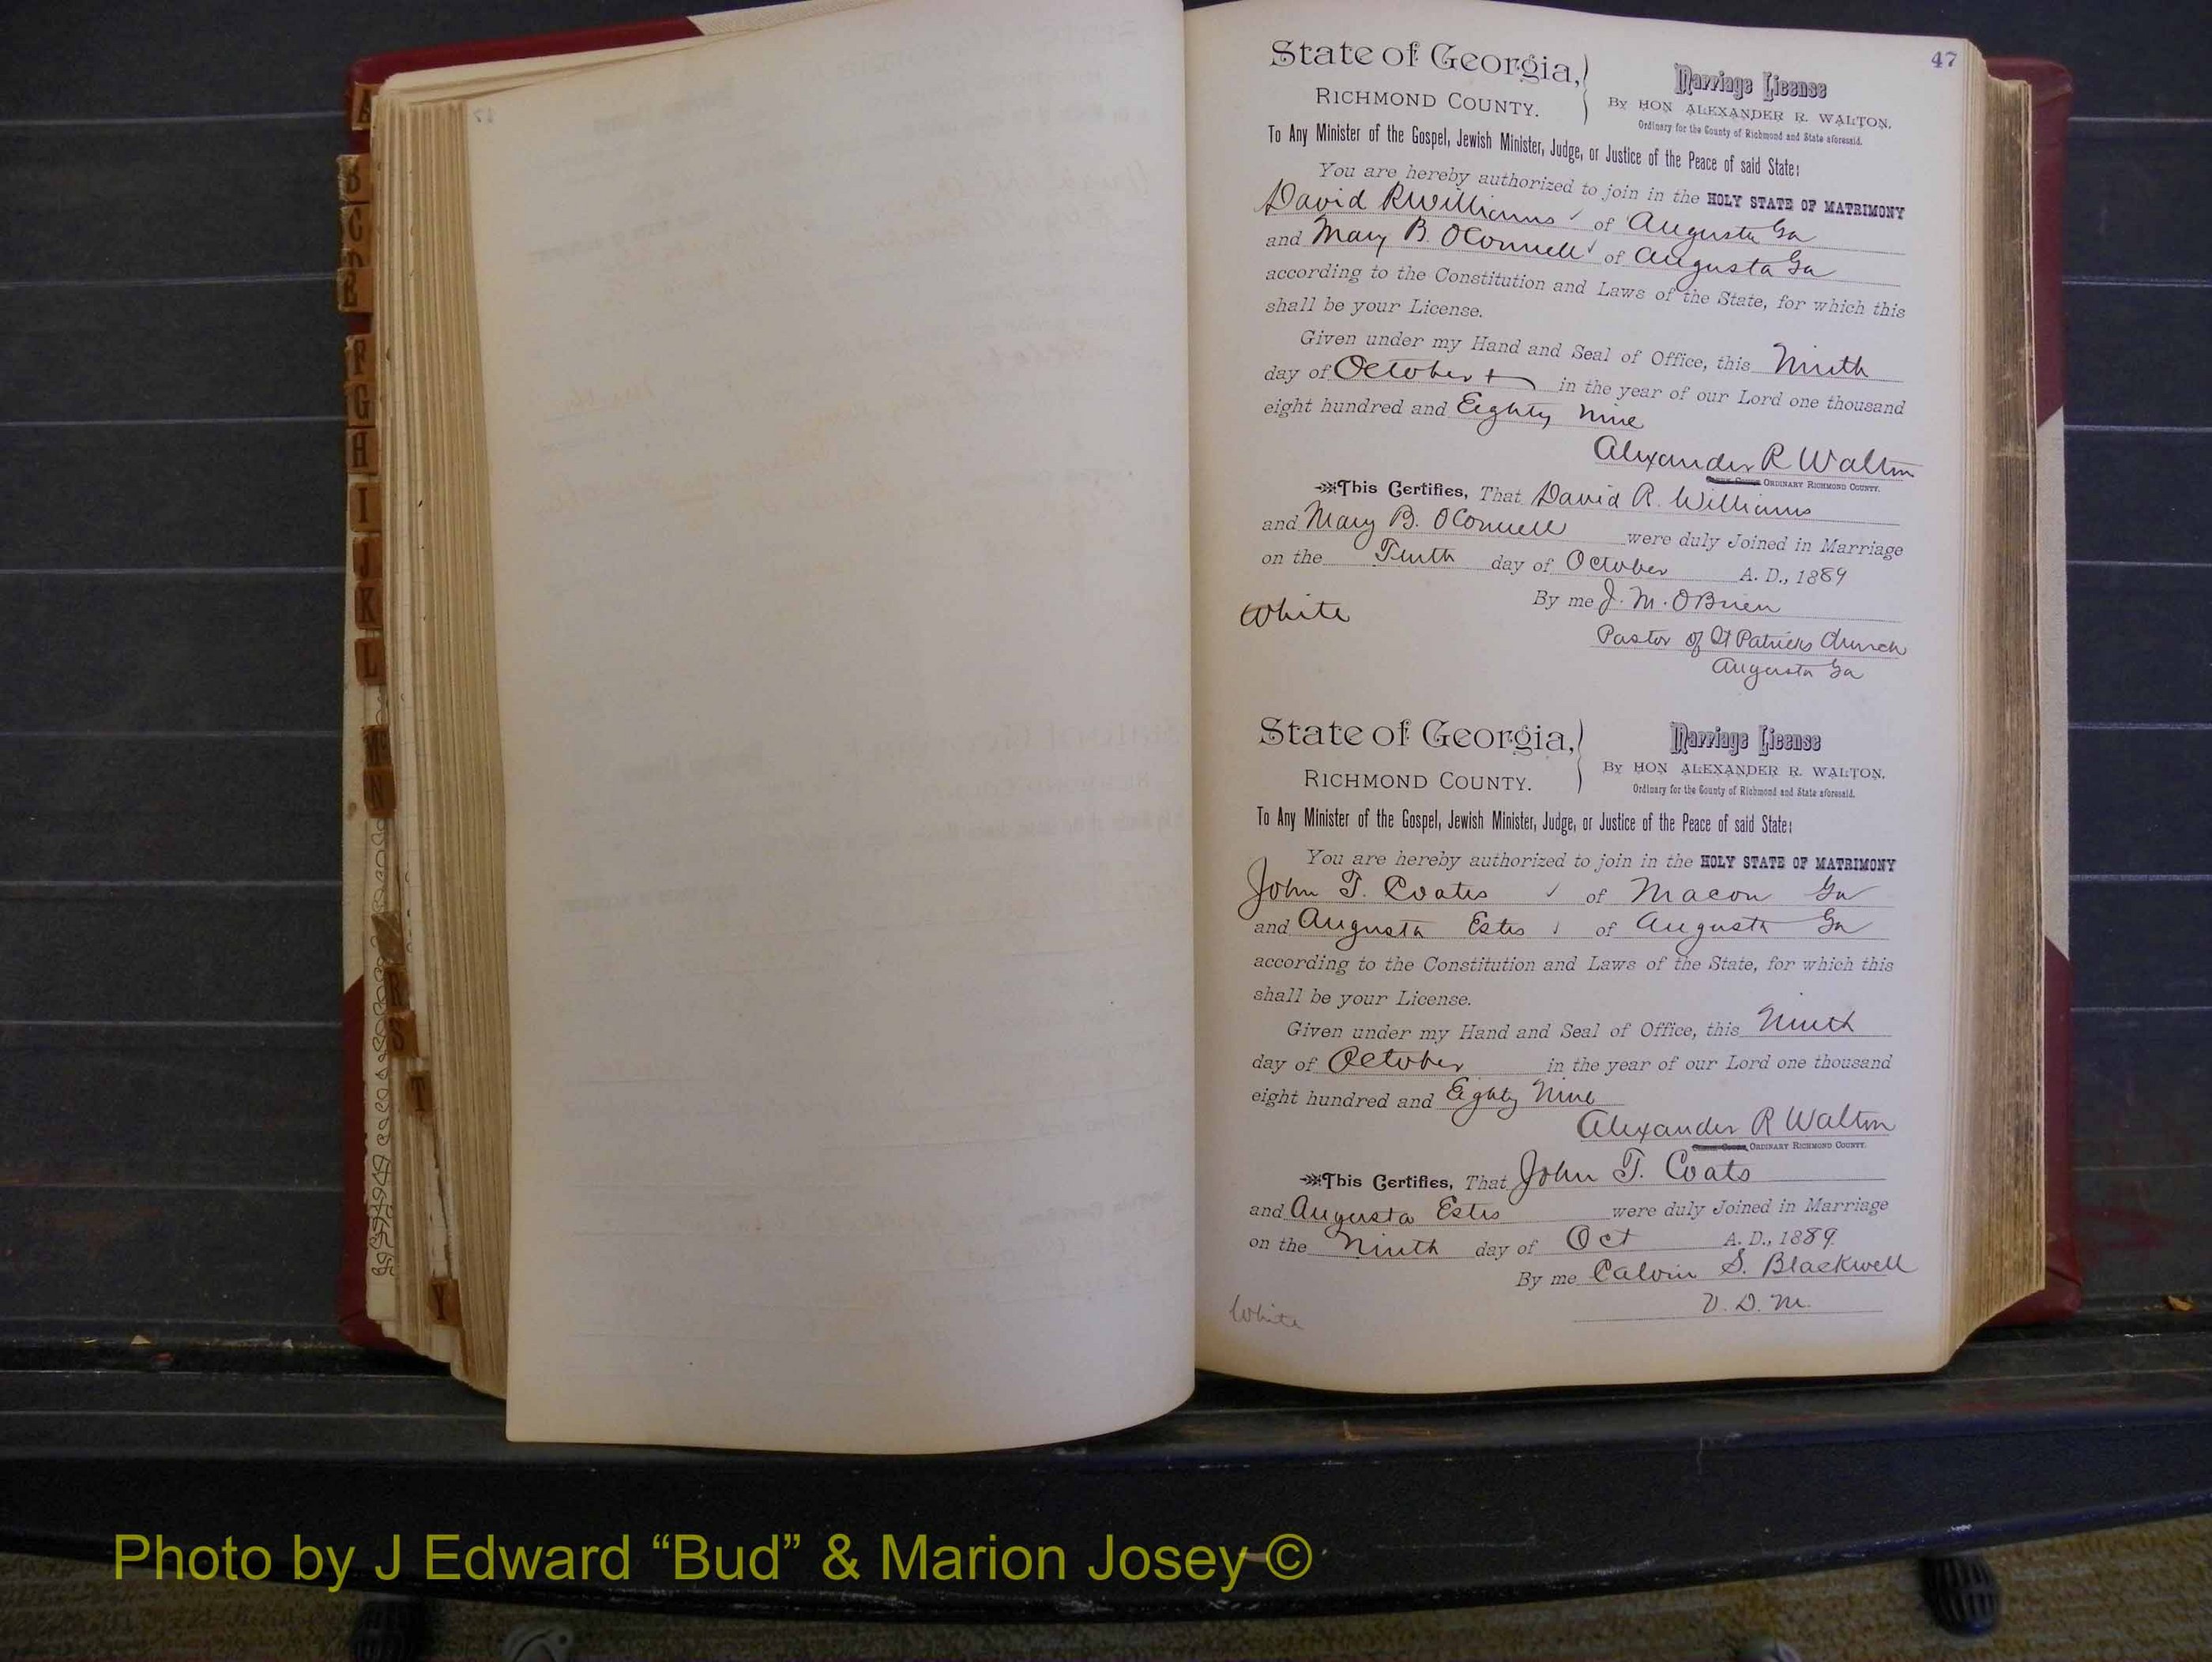 47
State of Georgia,
RICHMOND COUNTY.
Marriage License
By HON ALEXANDER R. WALTON,
Ordinary for the County of Richmond and State aforesaid.
To Any Minister of the Gospel, Jewish Minister, Judge, or Justice of the Peace of said State:
You are hereby authorized to join in the HOLY STATE OF MATRIMONY
David R Williams of Augusta Ga
and Mary B. OConnell of Augusta Ga
according to the Constitution and Laws of the State, for which this
shall be your License.
Given under my Hand and Seal of Office, this Ninth
day of October in the year of our Lord one thousand
eight hundred and Eighty Nine
Alexander R Walton
ORDINARY RICHMOND COUNTY.
This Certifies, That David R. Williams
and Mary B. OConnell were duly Joined in Marriage
on the Tenth day of October A. D., 1889
By me J. M. OBrien
White
Pastor of St Patricks Church
Augusta Ga
State of Georgia,
RICHMOND COUNTY.
Marriage License
By HON ALEXANDER R. WALTON,
Ordinary for the County of Richmond and State aforesaid.
To Any Minister of the Gospel, Jewish Minister, Judge, or Justice of the Peace of said State:
You are hereby authorized to join in the HOLY STATE OF MATRIMONY
John T. Coates of Macon Ga
and Augusta Estes of Augusta Ga
according to the Constitution and Laws of the State, for which this
shall be your License.
Given under my Hand and Seal of Office, this Ninth
day of October in the year of our Lord one thousand
eight hundred and Eighty Nine
Alexander R Walton
ORDINARY RICHMOND COUNTY.
This Certifies, That John T. Coats
and Augusta Estes were duly Joined in Marriage
on the Ninth day of Oct A. D., 1889
By me Calvin S. Blackwell
V. D. M.
White
A
B
C
F
G
H
I
J
K
L
N
R
S
T
Y
Photo by J Edward “Bud” & Marion Josey ©